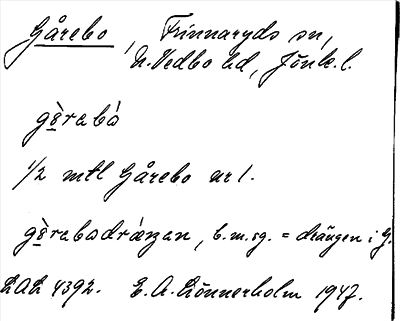 Gårebo, Frinnaryds sn,
N. Vedbo hd, Jönk. l.
gò̱rabó
1/2 mtl Gårebo nr 1.
gò̱rabodräŋan, b.m.sg. = drängen i G.
LAL 4392. E. A. Lönnerholm 1947.